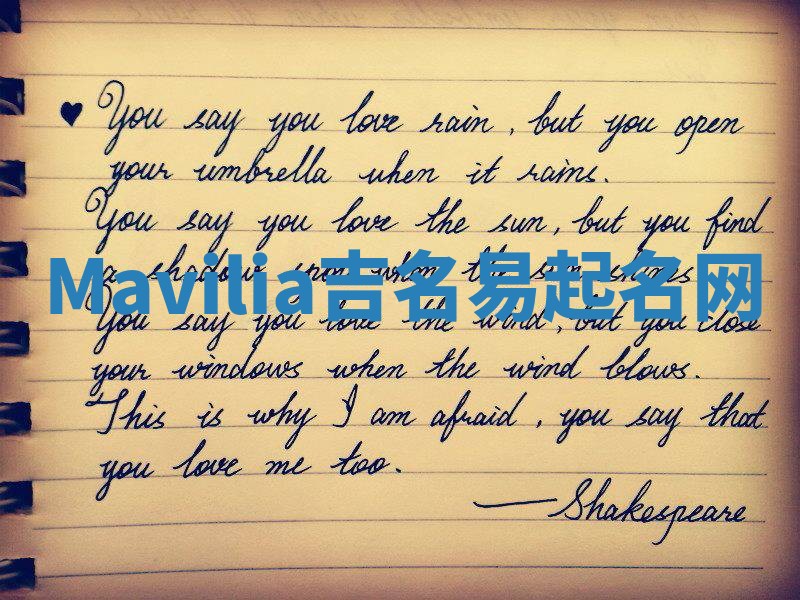 You say you love rain, but you open
your umbrella when it rains.
You say you love the sun, but you find
a shadow spot when the sun shines
Mavilia吉名易起名网
You say you love the wind, but you close
your windows when the wind blows.
This is why I am afraid, you say that
you love me too.
— Shakespeare